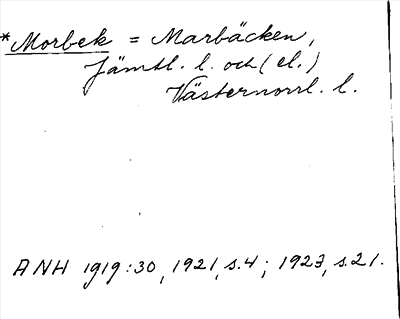 *Morbek = Marbäcken,
Jämtl. l. och (el.)
Västernorrl. l.
ANH 1919:30, 1921, s.4; 1923, s.21.